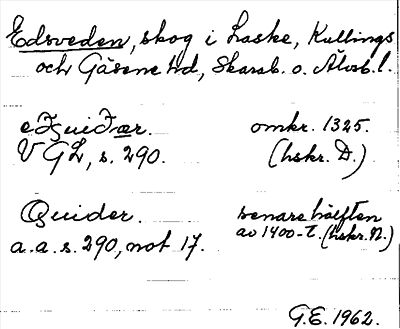 Edsveden, skog i Laske, Kullings
och Gäsene hd, Skarab. o. Älvsb. l.
eþzuiþær. omkr. 1325.
VGL, s. 290. (hskr. D.)
Quider. senare hälften
a.a. s. 290, not 17. av 1400-t. (hskr. N.)
G.E. 1962.